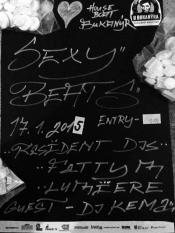 HOUSE
BOAT
BUKANÝR
U BUKANÝRA
SEXY"
BEATS"
17.1.2015 ENTRY-
"RESIDENT DJS"
"FATTY M
"LUMIÈRE
GUEST - DJ KEMA"